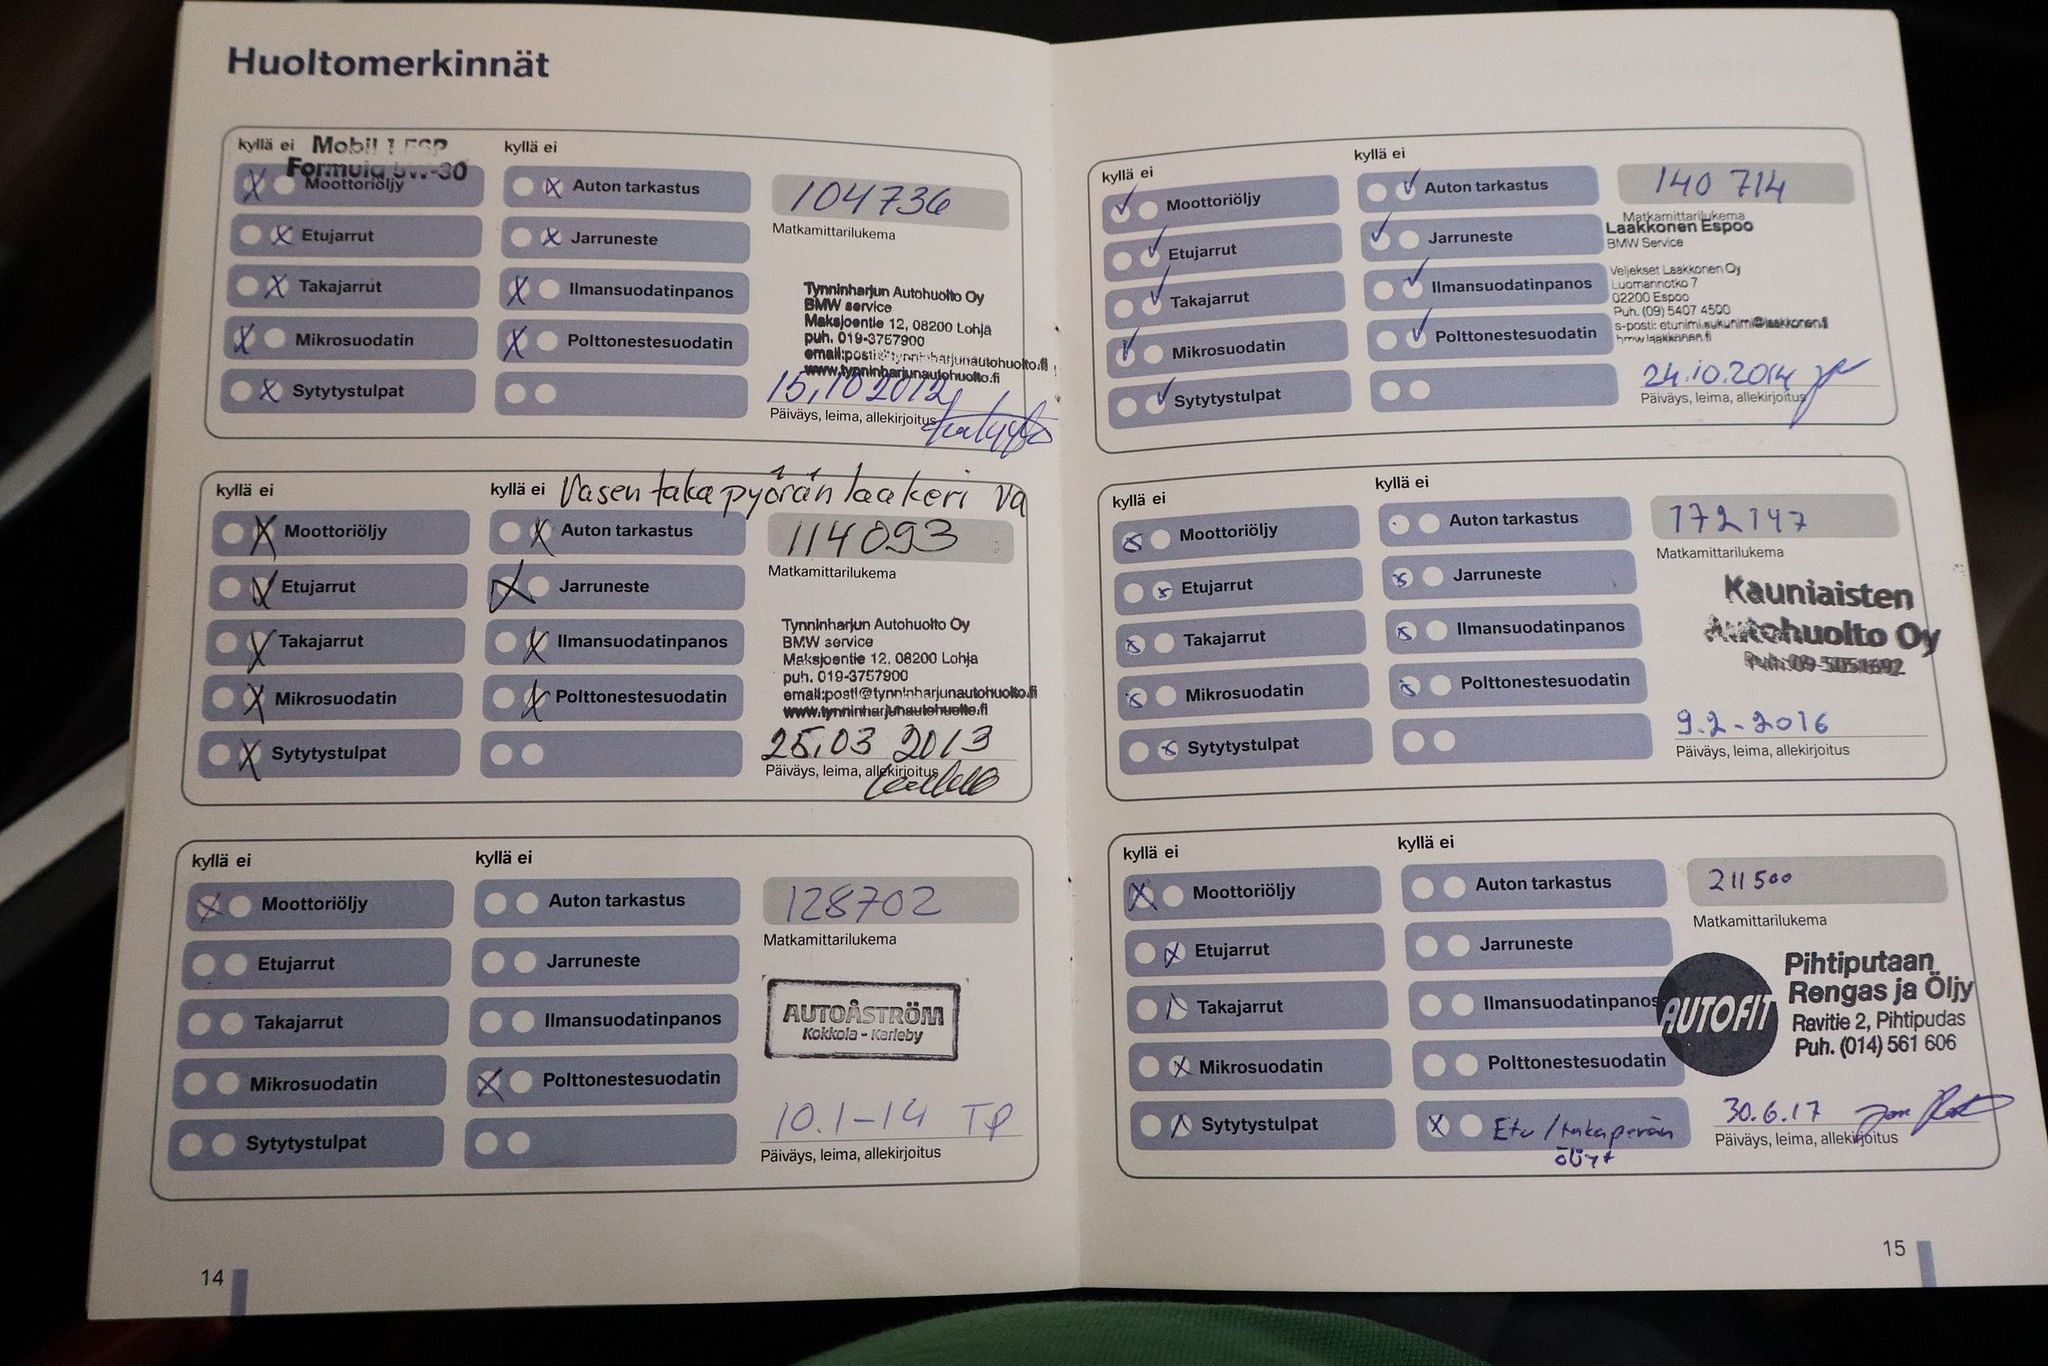 Huoltomerkinnät
kyllä ei
Mobil 1 ESP
Formula 5W-30
Moottoriöljy
Etujarrut
Takajarrut
Mikrosuodatin
Sytytystulpat
kyllä ei
Auton tarkastus
Jarruneste
Ilmansuodatinpanos
Polttonestesuodatin
104736
Matkamittarilukema
Tynninharjun Autohuolto Oy
BMW service
Maksjoentie 12, 08200 Lohja
puh. 019-3757900
email:posti@tynninharjunautohuolto.fi
www.tynninharjunautohuolto.fi
15.10 2012
Päiväys, leima, allekirjoitus
kyllä ei
Moottoriöljy
Etujarrut
Takajarrut
Mikrosuodatin
Sytytystulpat
kyllä ei Vasen taka pyörän laakeri va
Auton tarkastus
Jarruneste
Ilmansuodatinpanos
Polttonestesuodatin
114093
Matkamittarilukema
Tynninharjun Autohuolto Oy
BMW service
Maksjoentie 12, 08200 Lohja
puh. 019-3757900
email:posti@tynninharjunautohuolto.fi
www.tynninharjunautohuolto.fi
25.03 2013
Päiväys, leima, allekirjoitus
kyllä ei
Moottoriöljy
Etujarrut
Takajarrut
Mikrosuodatin
Sytytystulpat
kyllä ei
Auton tarkastus
Jarruneste
Ilmansuodatinpanos
Polttonestesuodatin
128702
Matkamittarilukema
AUTOÅSTRÖM
Kokkola - Karleby
10.1-14 TP
Päiväys, leima, allekirjoitus
14
kyllä ei
Moottoriöljy
Etujarrut
Takajarrut
Mikrosuodatin
Sytytystulpat
kyllä ei
Auton tarkastus
Jarruneste
Ilmansuodatinpanos
Polttonestesuodatin
140 714
Matkamittarilukema
Laakkonen Espoo
BMW Service
Veljekset Laakkonen Oy
Luomannotko 7
02200 Espoo
Puh. (09) 5407 4500
s-posti: etunimi.sukunimi@laakkonen.fi
bmw.laakkonen.fi
24.10.2014
Päiväys, leima, allekirjoitus
kyllä ei
Moottoriöljy
Etujarrut
Takajarrut
Mikrosuodatin
Sytytystulpat
kyllä ei
Auton tarkastus
Jarruneste
Ilmansuodatinpanos
Polttonestesuodatin
172147
Matkamittarilukema
Kauniaisten
Autohuolto Oy
Puh. 09-5051692
9.2-2016
Päiväys, leima, allekirjoitus
kyllä ei
Moottoriöljy
Etujarrut
Takajarrut
Mikrosuodatin
Sytytystulpat
kyllä ei
Auton tarkastus
Jarruneste
Ilmansuodatinpanos
Polttonestesuodatin
Etu/takaperän
öljyt
211500
Matkamittarilukema
AUTOFIT
Pihtiputaan
Rengas ja Öljy
Ravitie 2, Pihtipudas
Puh. (014) 561 606
30.6.17
Päiväys, leima, allekirjoitus
15